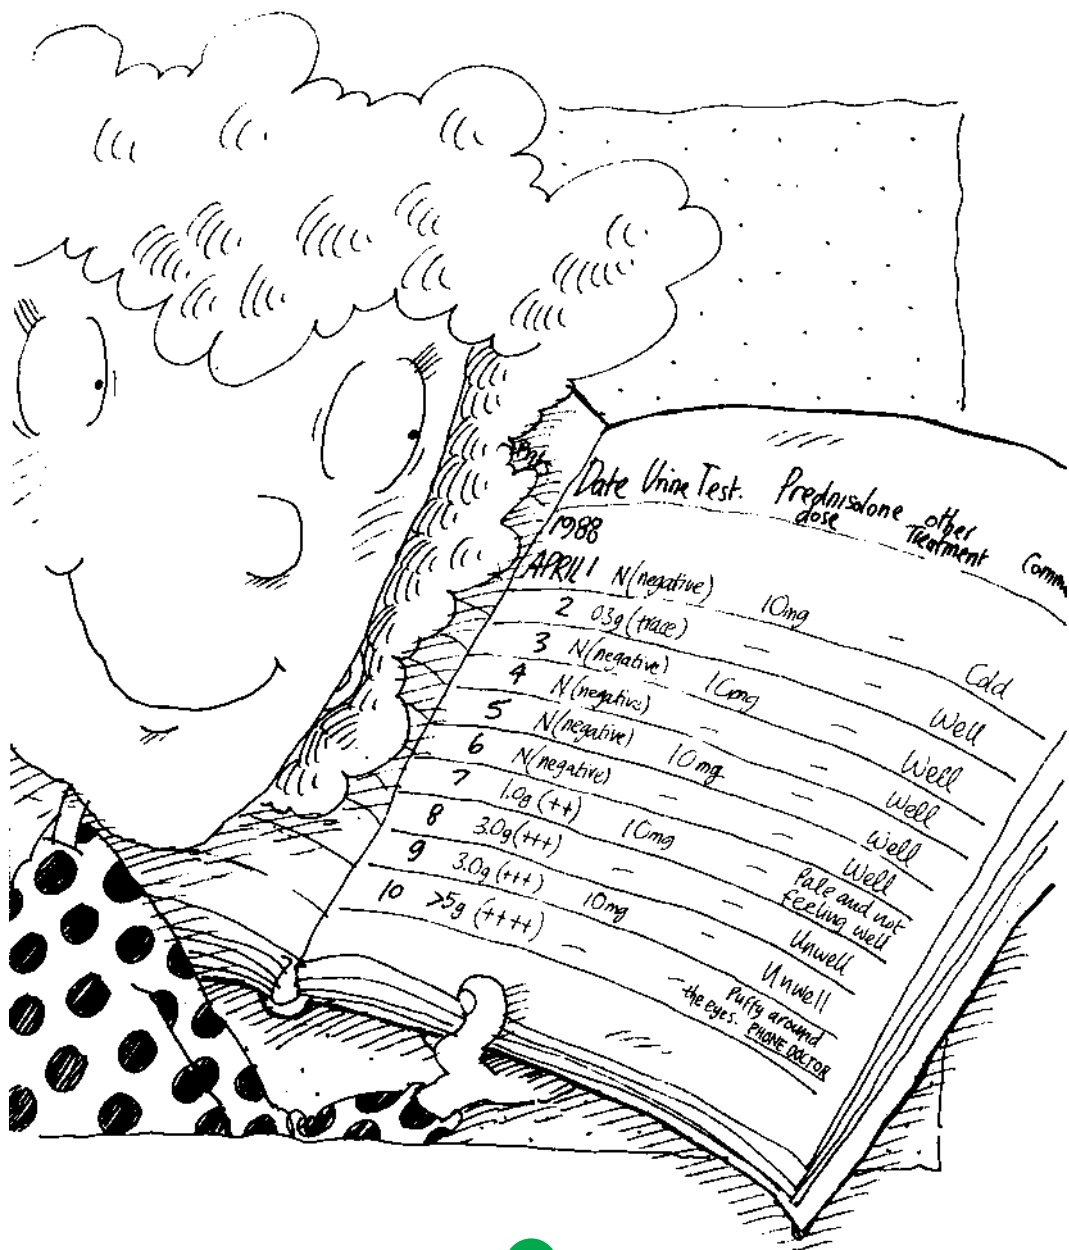 Date Urine Test. Prednisolone dose other Treatment
1988
APRIL 1 N(negative) 10mg – Cold
2 0.3g (trace) – – Well
3 N(negative) 10mg – Well
4 N(negative) – – Well
5 N(negative) 10mg – Well
6 N(negative) – – Well
7 1.0g (++) 10mg – Pale and not feeling well
8 3.0g (+++) – – Unwell
9 3.0g (+++) 10mg – Unwell
10 >5g (++++) – – Puffy around the eyes. PHONE DOCTOR